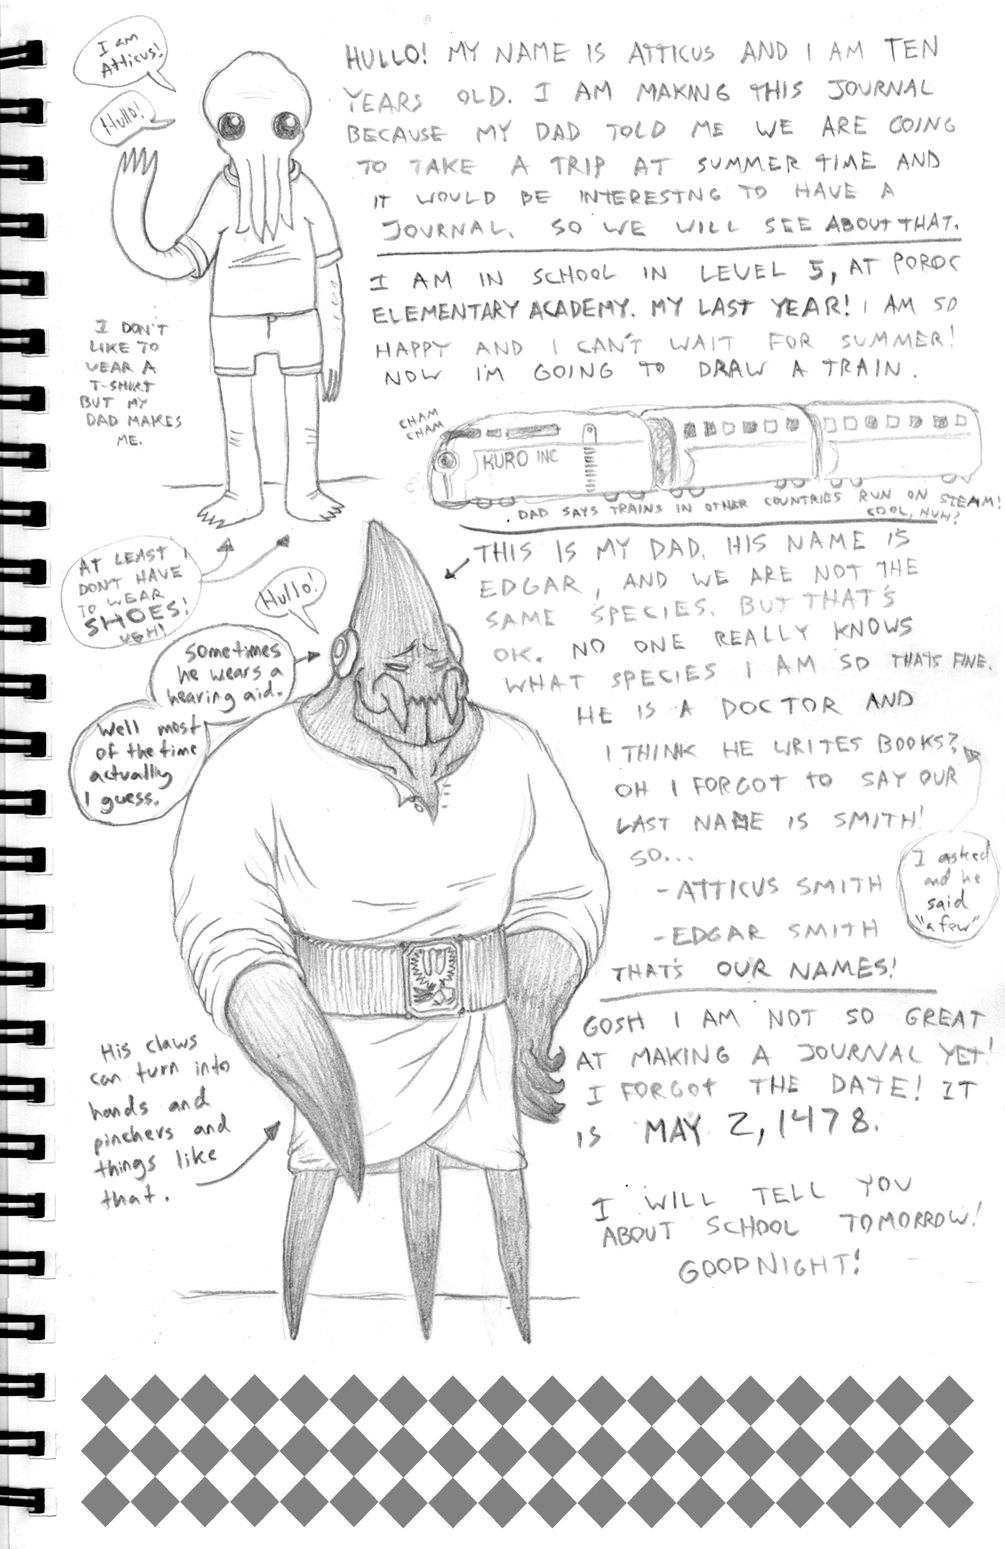 I am
Atticus!
Hullo!
HULLO! MY NAME IS ATTICUS AND I AM TEN
YEARS OLD. I AM MAKING THIS JOURNAL
BECAUSE MY DAD TOLD ME WE ARE GOING
TO TAKE A TRIP AT SUMMER TIME AND
IT WOULD BE INTERESTNG TO HAVE A
JOURNAL. SO WE WILL SEE ABOUT THAT.
I AM IN SCHOOL IN LEVEL 5, AT POROC
ELEMENTARY ACADEMY. MY LAST YEAR! I AM SO
HAPPY AND I CAN'T WAIT FOR SUMMER!
NOW I'M GOING TO DRAW A TRAIN.
I DON'T
LIKE TO
WEAR A
T-SHIRT
BUT MY
DAD MAKES
ME.
CHAM
CHAM
KURO INC
DAD SAYS TRAINS IN OTHER COUNTRIES RUN ON STEAM!
COOL, HUH?
AT LEAST I
DON'T HAVE
TO WEAR
SHOES!
UGH!
Hullo!
sometimes
he wears a
hearing aid.
Well most
of the time
actually
I guess.
THIS IS MY DAD. HIS NAME IS
EDGAR, AND WE ARE NOT THE
SAME SPECIES. BUT THAT'S
OK. NO ONE REALLY KNOWS
WHAT SPECIES I AM SO THATS FINE.
HE IS A DOCTOR AND
I THINK HE WRITES BOOKS?
OH I FORGOT TO SAY OUR
LAST NAME IS SMITH!
SO...
- ATTICUS SMITH
- EDGAR SMITH
THAT'S OUR NAMES!
I asked
and he
said
"a few"
GOSH I AM NOT SO GREAT
AT MAKING A JOURNAL YET!
I FORGOT THE DATE! IT
IS MAY 2, 1478.
His claws
can turn into
hands and
pinchers and
things like
that.
I WILL TELL YOU
ABOUT SCHOOL TOMORROW!
GOODNIGHT!